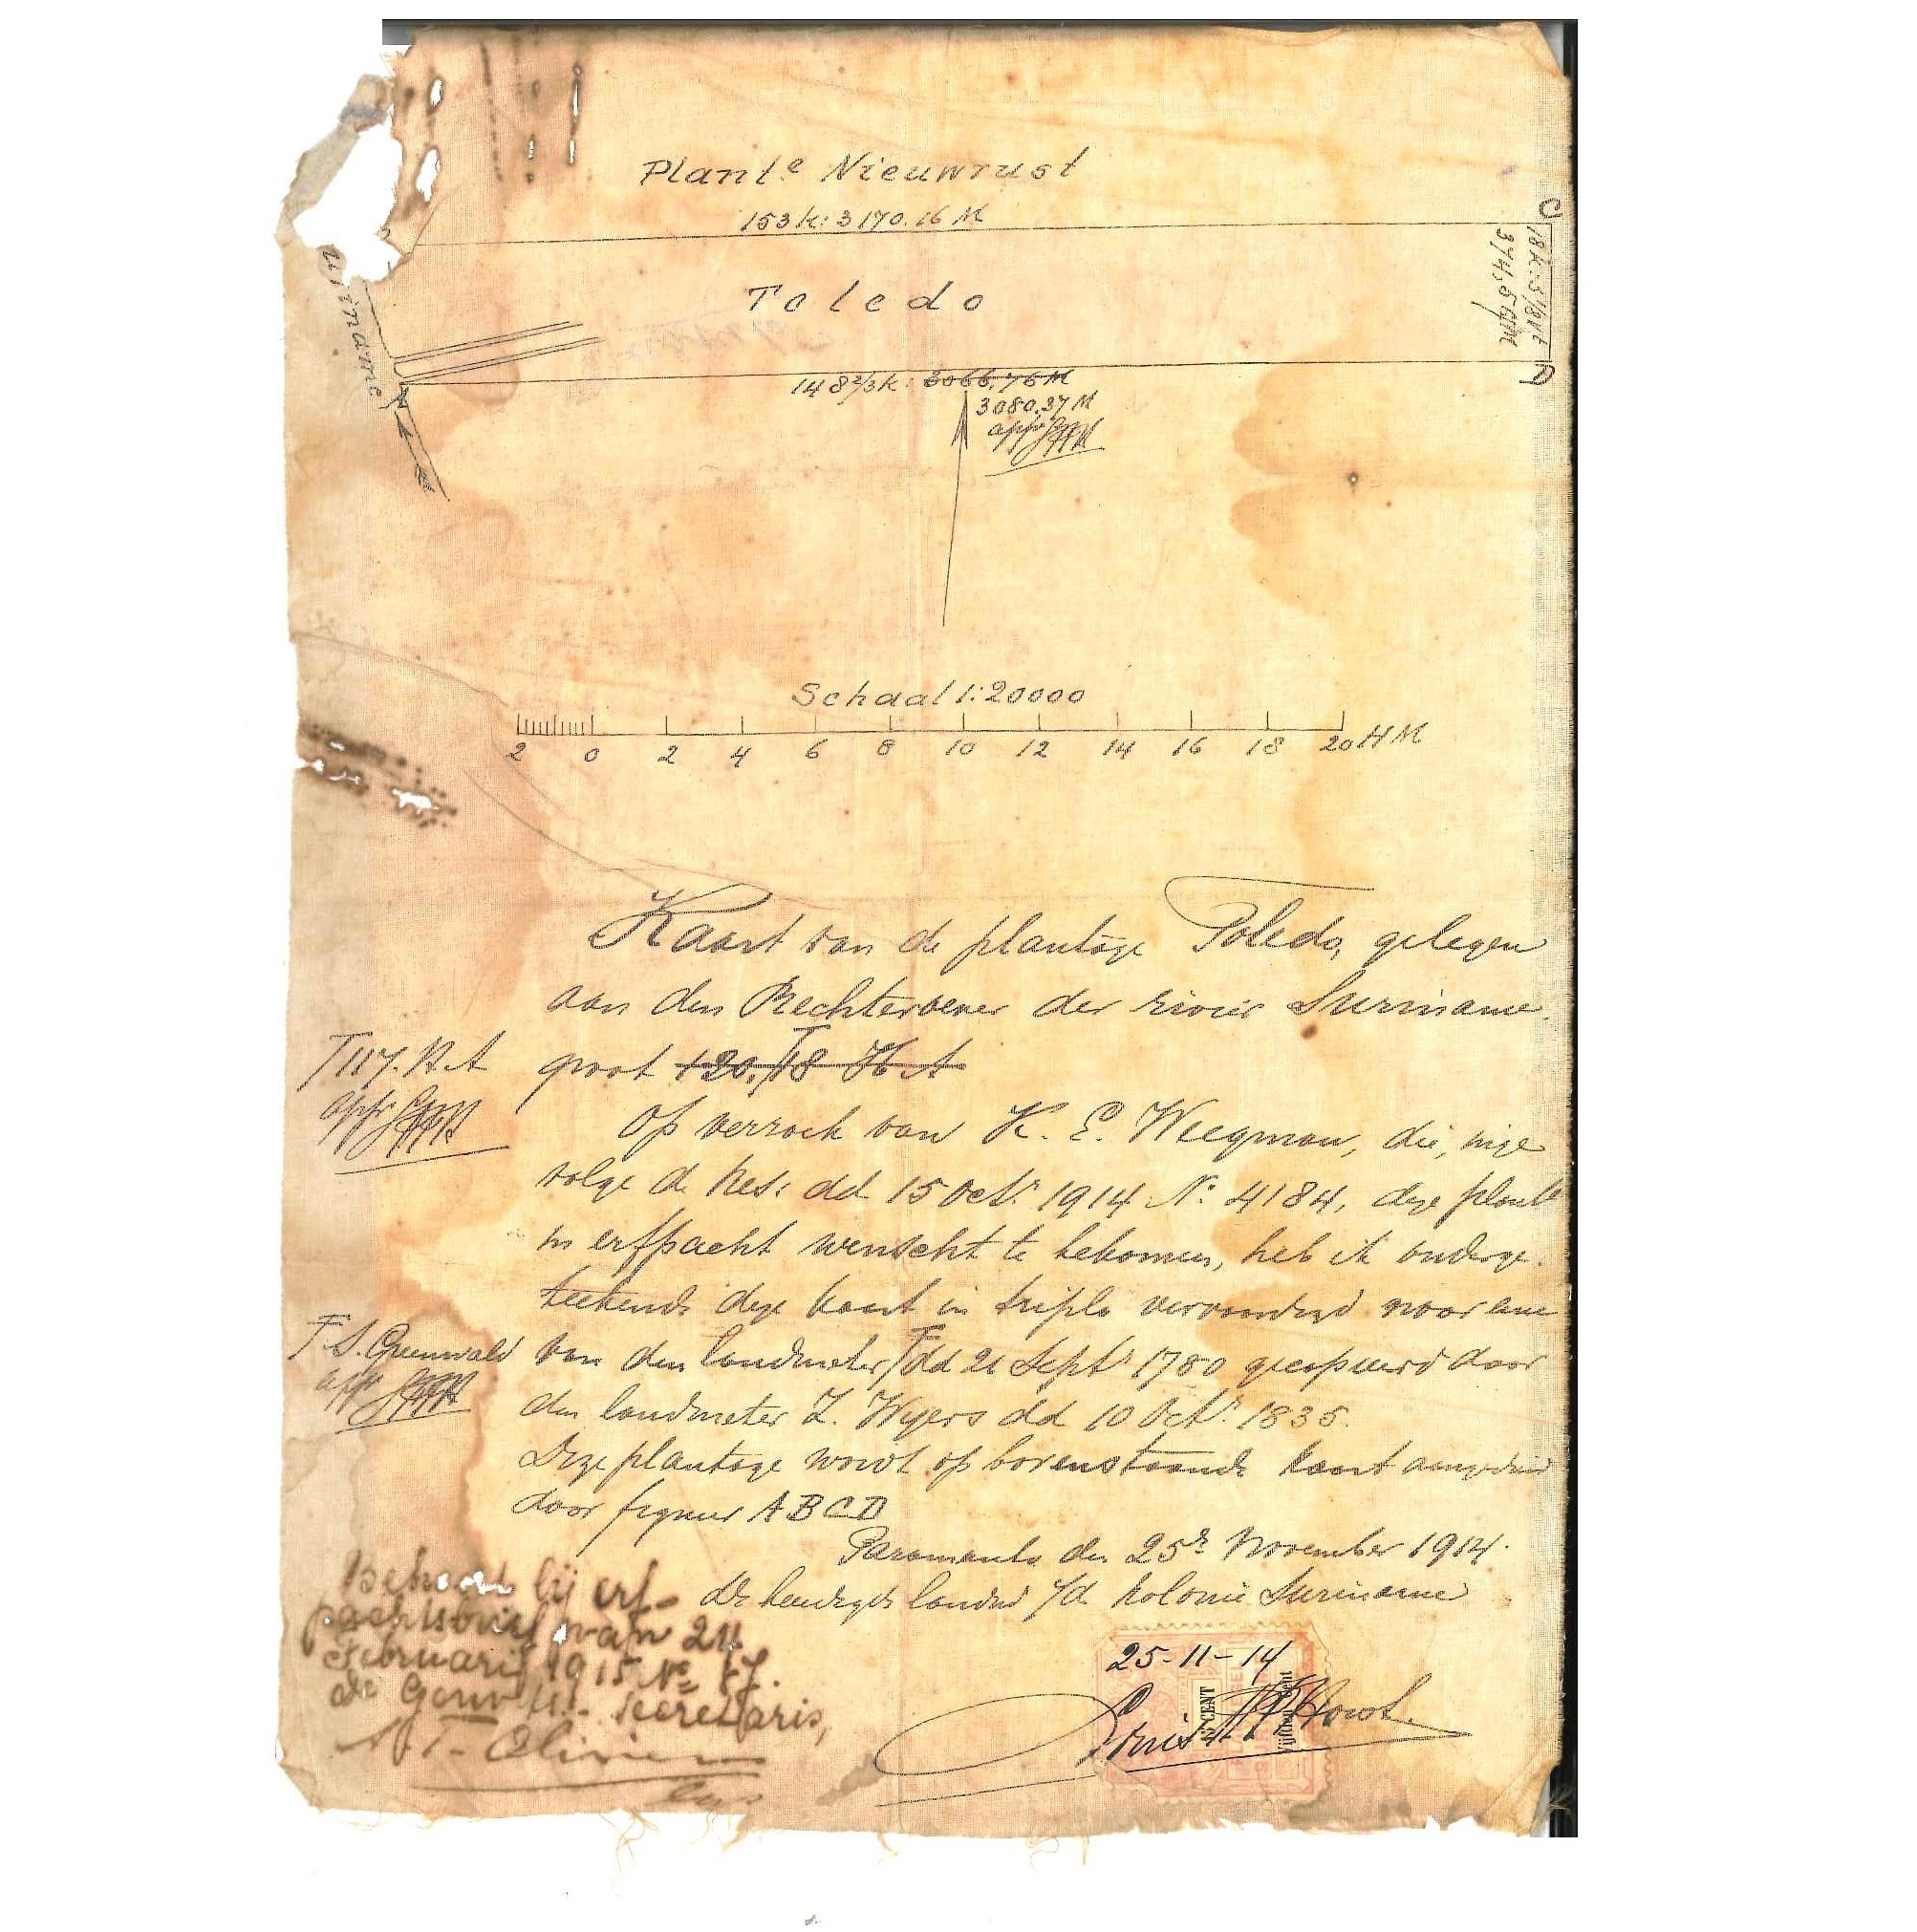 Plant.e Nieuwrust
153 k: 3170.16 M
C
18 k. 5
374,5 M
uriname
Toledo
148 2/3 k: 3066,76 M
3080,37 M
appr
Schaal 1:20000
2 0 2 4 6 8 10 12 14 16 18 20 HM
Kaart van de plantage Toledo, gelegen
aan den Rechteroever der rivier Suriname.
groot 120,18 HA
117. HA
appr
Op verzoek van K. E. Wiegman, die, inge
volge de Res: dd 15 Oct.r 1914 No 4184, deze plant.e
in erfpacht wenscht te bekomen, heb ik onderge-
teekende deze kaart in triplo vervaardigd naar eene
van den landmeter dd 21 Sept.r 1780 gecopieerd door
S. Greenwald
appr
den landmeter Z. Wyers dd 10 Oct.r 1835.
Deze plantage wordt op bovenstaande kaart aangeduid
door figuur ABCD
Paramaribo den 25e November 1914.
De beedigde landm i/d kolonie Suriname
Behoort bij erf-
pachtsbrief van 24
Februari 1915 No
de Gouvts. Secretaris,
25-11-14
CENT
Vijftien cent